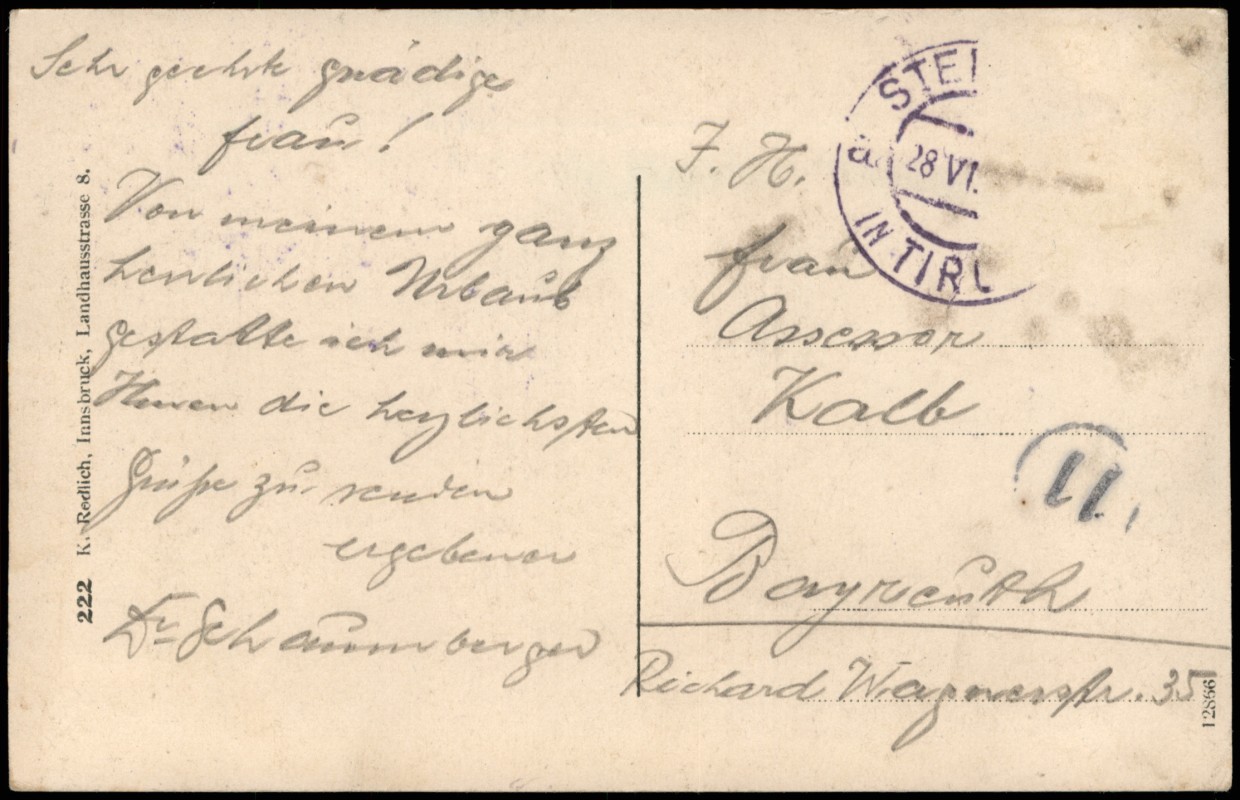 Sehr geehrte gnädige
Frau!
Von meinem ganz
herrlichen Urlaub
gestatte ich mir
Ihnen die herzlichsten
Grüße zu senden
ergebener
Dr Schaumberger
222 K. Redlich, Innsbruck, Landhausstrasse 8.
STEI
a. 28 VI.
IN TIRO
I. H.
Frau
Assessor
Kalb
11
Bayreuth
Richard Wagnerstr. 35
12866